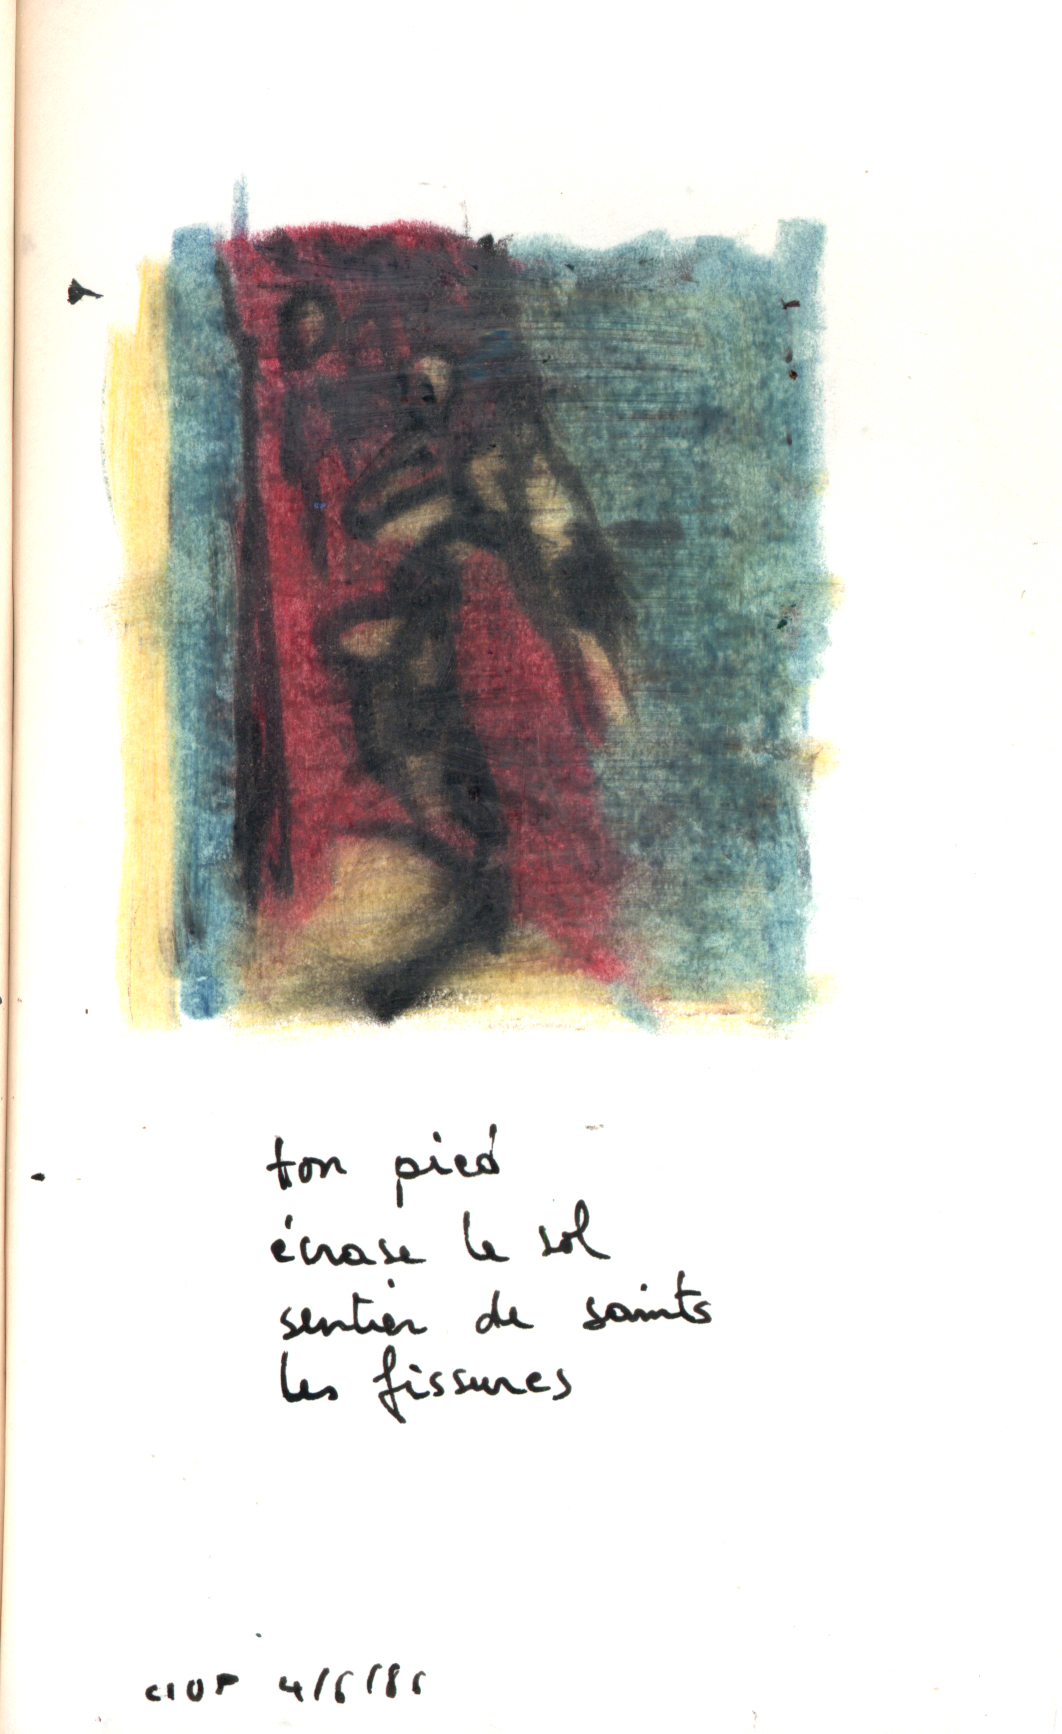 ton pied
écrase le sol
sentier de saints
les fissures
CIUP 4/6/86